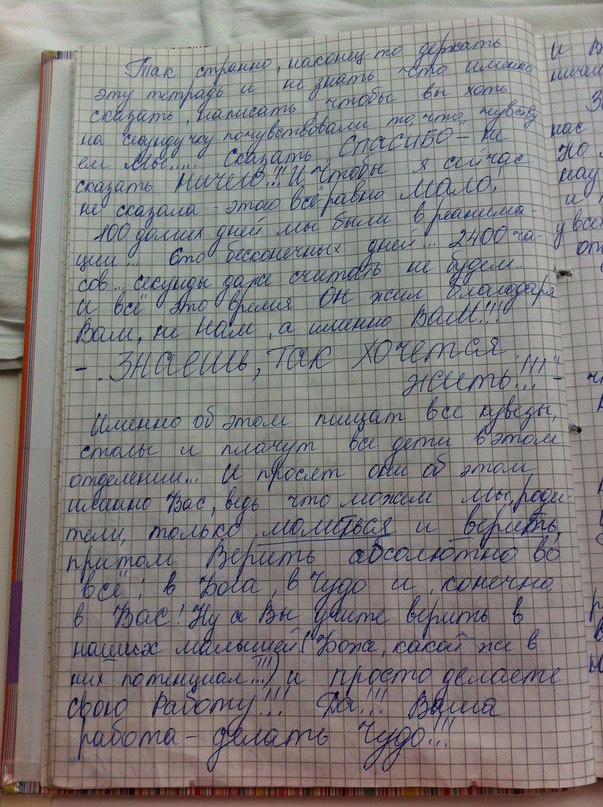 Так странно, наконец-то держать
эту тетрадь и не знать что именно
сказать, написать, чтобы вы хоть
на секундочку почувствовали то, что чувству
ем мы..... Сказать СПАСИБО - не
сказать НИЧЕГО!!! И чтобы я сейчас
не сказала - этого всё равно МАЛО!
100 долгих дней мы были в реанима-
ции... Сто бесконечных дней... 2400 ча-
сов... секунды даже считать не будем..
и всё это время ОН жил благодаря
Вам, не нам, а именно ВАМ!!!
- "Знаешь, так хочется
жить!!!" -
Именно об этом пищат все кувезы,
столы и плачут все дети в этом
отделении... И просят они об этом
именно Вас, ведь что можем мы, роди-
тели, только молиться и верить,
притом Верить абсолютно во
всё: в Бога, в Чудо и, конечно,
в Вас! Ну а Вы учите верить в
наших малышей (Боже, какой же в
них потенциал!!!) и просто делаете
свою Работу!!! Да!!! Ваша
работа - делать Чудо!!!
и В
ничем
З
нас
Но
нау
и
у все
от
ч
р
В